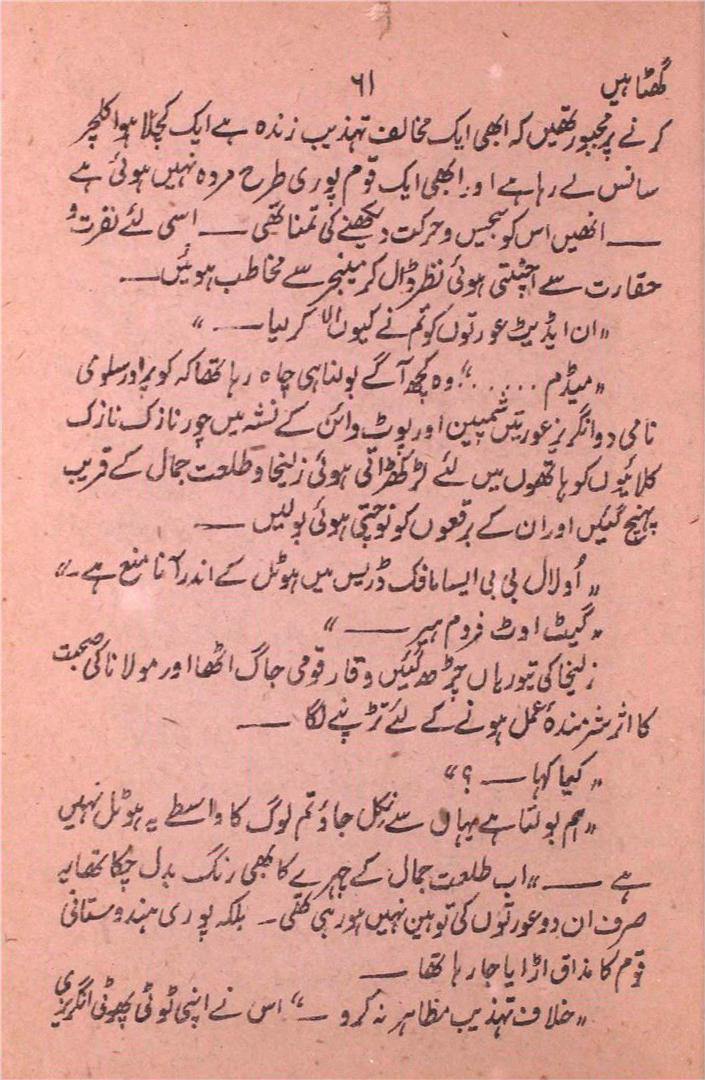 گھٹا ہیں
۶۱
کرنے پر مجبور تھیں کہ ابھی ایک مخالف تہذیب زندہ ہے ایک کچلا ہوا کلچر
سانس لے رہا ہے اور ابھی ایک قوم پوری طرح مردہ نہیں ہوئی ہے
—— انھیں اس کو بیحس وحرکت دیکھنے کی تمنا تھی —— اسی لئے نفرت و
حقارت سے اچٹتی ہوئی نظر ڈال کر مینجر سے مخاطب ہوئیں——
"ان ایڈیٹ عورتوں کو تم نے کیوں الاؤ کر لیا ——"
"میڈم ....." وہ کچھ آگے بولنا ہی چاہ رہا تھا کہ کوپر اور سلومی
نامی دو انگریز عورتیں شمپین اور پوٹ وائن کے نشہ میں چور نازک نازک
کلائیوں کو ہاتھوں میں لئے لڑکھڑاتی ہوئی زلیخا و طلعت جمال کے قریب
پہنچ گئیں اور ان کے برقعوں کو نوچتی ہوئی بولیں ——
"اُولال بی بی ایسا مافک ڈریس میں ہوٹل کے اندر آنا منع ہے۔"
"گیٹ اوٹ فروم ہیر ——"
زلیخا کی تیوریاں چڑھ گئیں وقار قومی جاگ اٹھا اور مولانا کی صحبت
کا اثر شرمندۂ عمل ہونے کے لئے تڑپنے لگا ——
"کیا کہا —— ؟"
"ہم بولتا ہے یہاں سے نِکل جاؤ تم لوگ کا واسطے یہ ہوٹل نہیں
ہے ——" اب طلعت جمال کے چہرے کا بھی رنگ بدل چکا تھا یہ
صرف ان دو عورتوں کی توہین نہیں ہو رہی تھی۔ بلکہ پوری ہندوستانی
قوم کا مذاق اڑایا جا رہا تھا ——
"خلاف تہذیب مظاہر نہ کرو ——" اس نے اپنی ٹوٹی پھوٹی انگریزی